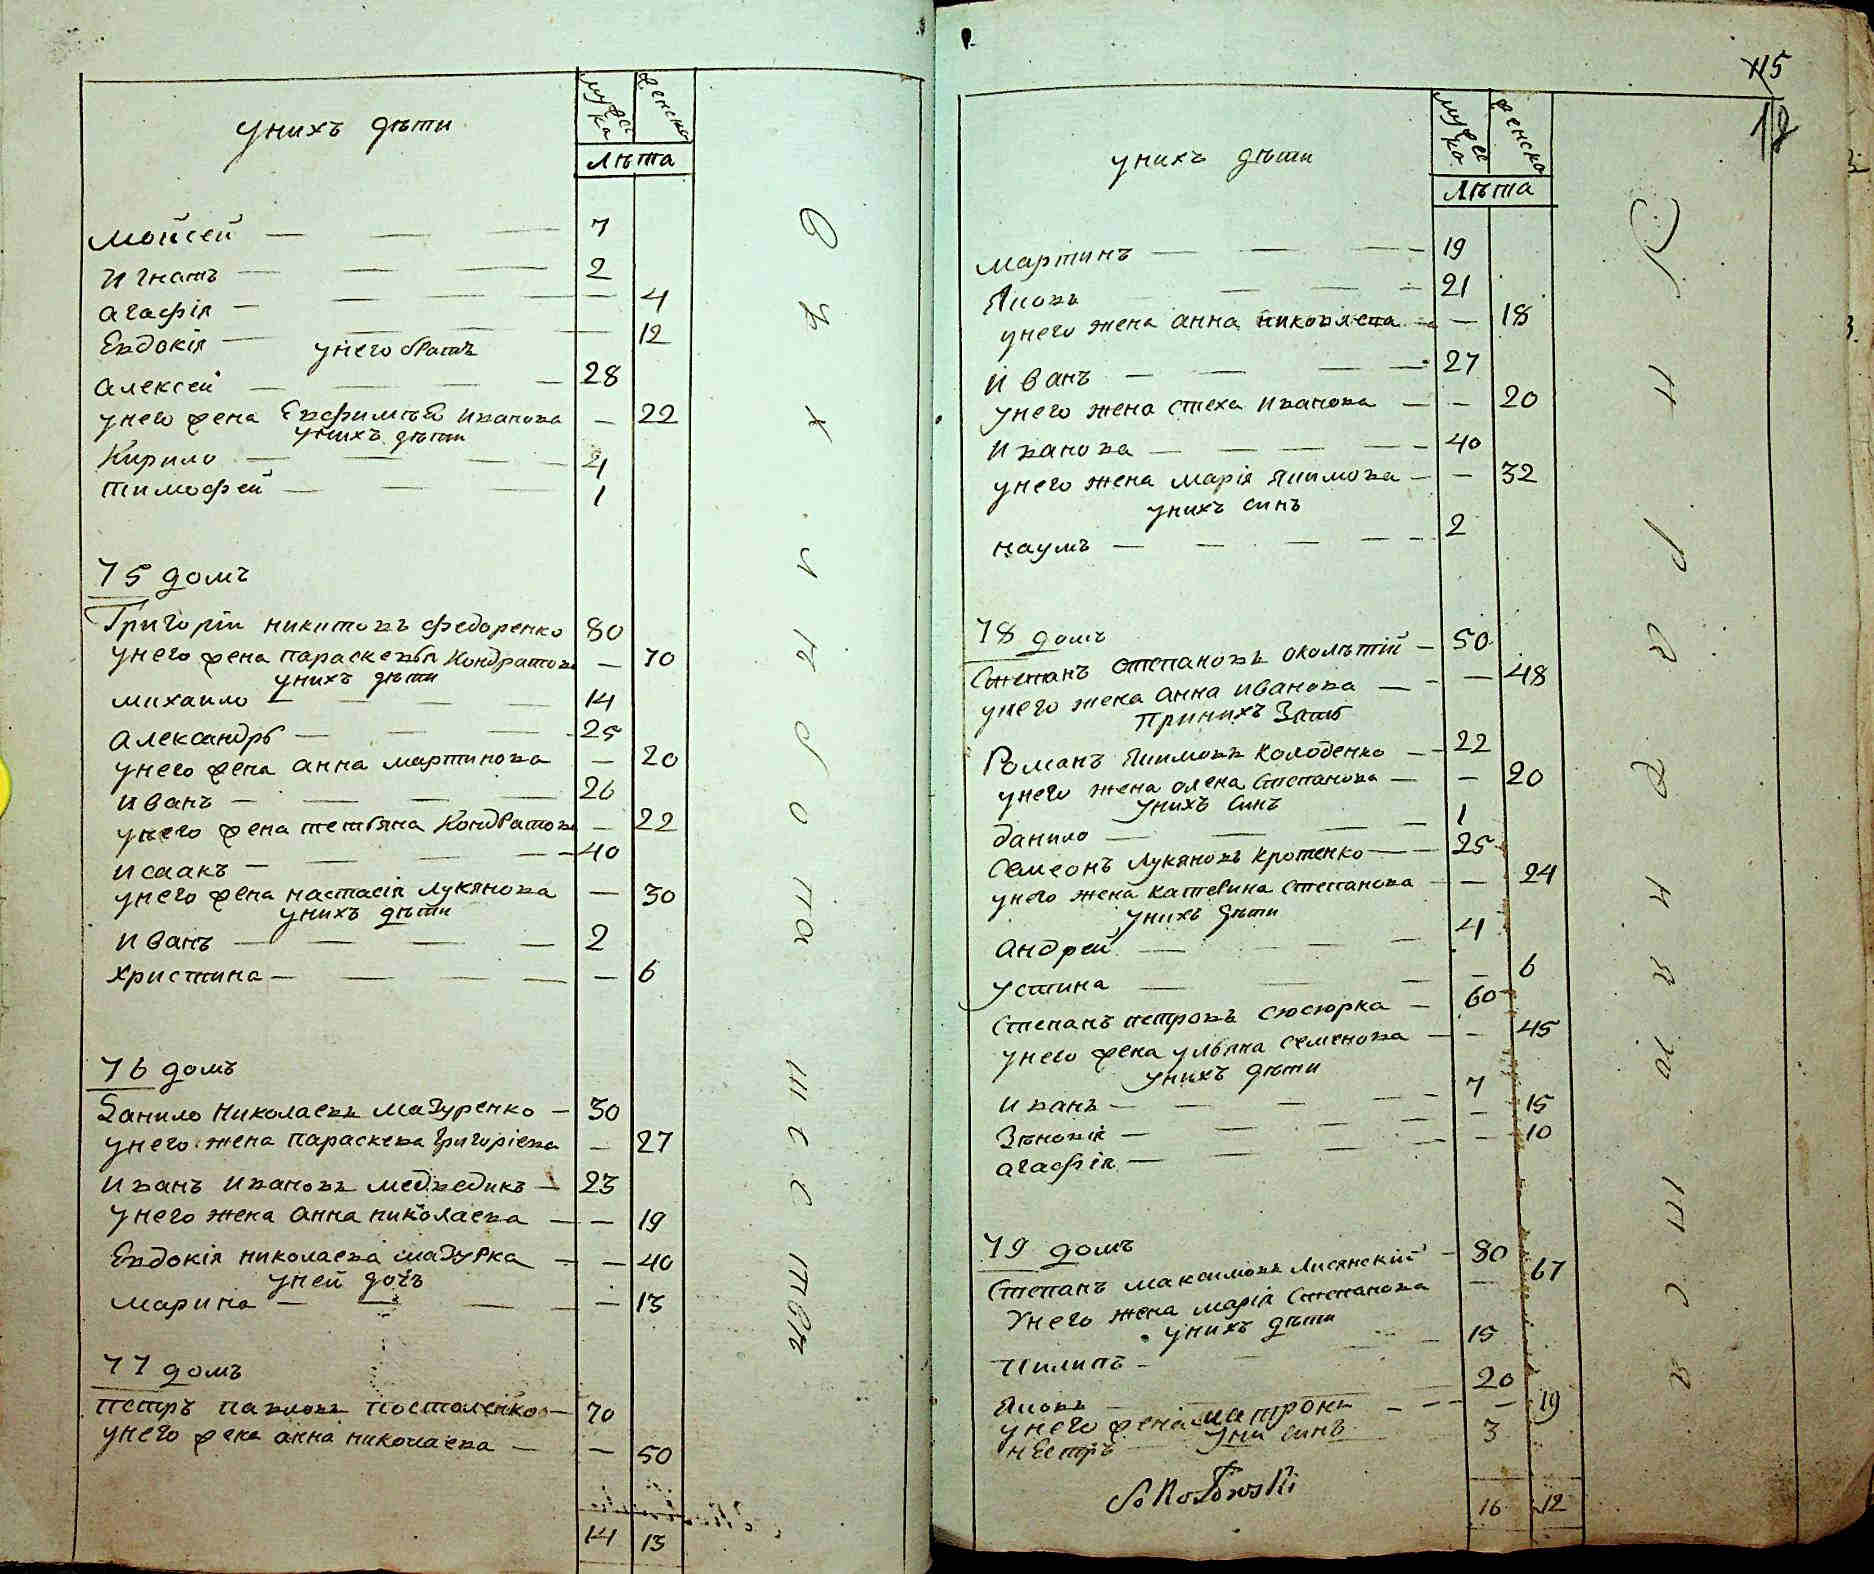 унихъ дѣти
мужеска
женска
лѣта
Мойсей — 7
Игнатъ — 2
агафія — 4
Евдокія — 12
унего братъ
алексей — 28
унего жена Евфимѣя Иванова — 22
унихъ дѣти
Кирило — 4
тимофей — 1
75 домъ
Григорій никитовъ федоренко 80
унего жена параскевья Кондратова — 70
унихъ дѣти
михаило — 14
александръ — 25
унего жена анна мартинова — 20
иванъ — 26
унего жена тетяна Кондратова — 22
исаакъ — 40
унего жена настасія лукянова — 30
унихъ дѣти
иванъ — 2
христина — 6
76 домъ
Данило николаевъ мазуренко — 30
унего жена параскева григоріева — 27
иванъ ивановъ медведикъ — 23
унего жена анна николаева — 19
Евдокія николаева мазурка — 40
уней дочъ
марина — 13
77 домъ
петръ павловъ постоленко — 70
унего жена анна николаева — 50
14 13
115
унихъ дѣти
мужеска
женска
лѣта
мартинъ — 19
Яковъ — 21
унего жена анна — 18
иванъ — 27
унего жена стеха иванова — 20
иванова — 40
унего жена марія якимова — 32
унихъ синъ
наумъ — 2
78 домъ
Степанъ степановъ околѣтій — 50
унего жена анна иванова — 48
принихъ зять
Романъ якимовъ колоденко — 22
унего жена олена степанова — 20
унихъ синъ
данило — 1
семеонъ лукяновъ кротенко — 25
унего жена катерина степанова — 24
унихъ дѣти
андрей — 4
устина — 6
степанъ петровъ сюсюрка — 60
унего жена уляна семенова — 45
унихъ дѣти
иванъ — 7
Зѣновія — 15
агафія — 10
79 домъ
Степанъ максимовъ лисянскій — 80
унего жена марія степанова — 67
унихъ дѣти
пилипъ — 15
Яковъ — 20
унего жена матрона — 19
уни синъ
нестръ — 3
Sokołowski
16 12